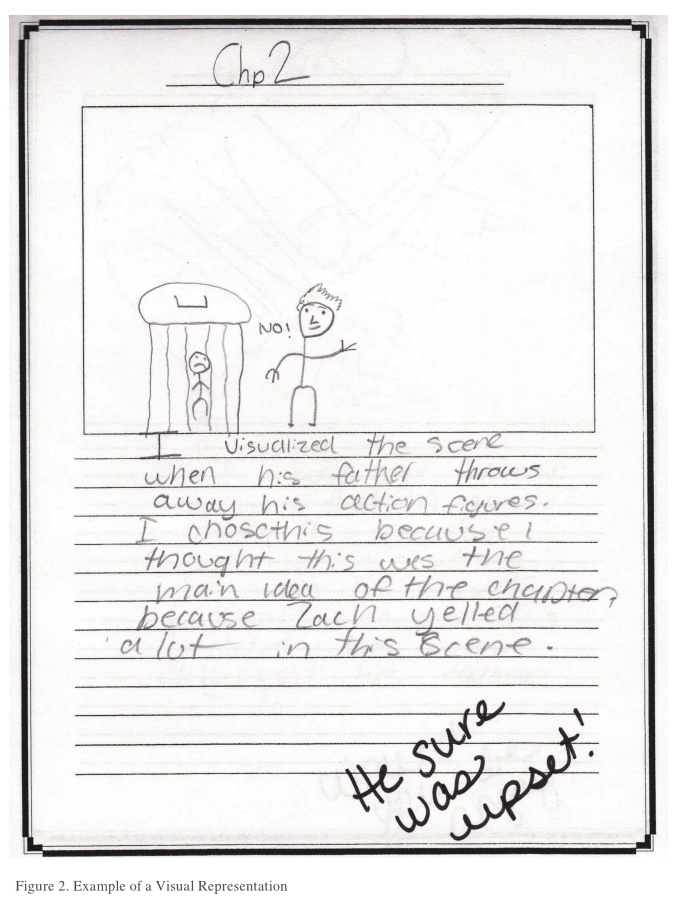 Chp 2
NO!
I visualized the scene
when his father throws
away his action figures.
I chosethis because I
thought this was the
main idea of the chapter,
because Zach yelled
a lot in this scene.
He sure
was
upset!
Figure 2. Example of a Visual Representation